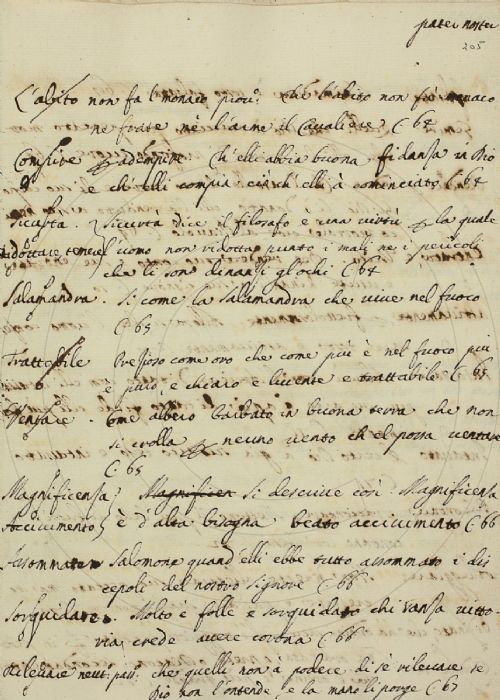 pater noster
205
L'abito non fa l'monaco prov. Che l'abito non fà monaco
ne frate, nè l'arme il Cavaliere C 64
Compire p adempire Ch'elli abbia buona fidansa in Dio
e ch'elli compia ciò ch'elli à cominciato C 64
Sicurtà. Sicurtà dice il filosofo è una virtù p la quale
ridottare temere l'uomo non ridotta punto i mali ne i pericoli
che li son dinansi gl'ochi C 64
Salamandra. Si come la Salamandra che vive nel fuoco
C 65
Trattabile Pressioso come oro che come più è nel fuoco più
è puro, e chiaro e lucente e trattabile C 65
Ventare. Come albero barbato in buona terra che non
si crolla p neuno vento ch'el possa ventare
C 65
Magnificensa Magnificen Si descrive così: Magnificensa
Accivimento è d'alta bisogna beato accivimento C 66
Assommate Salomone quand'elli ebbe tutto assommato i dis
cepoli del nostro Signore C 66
Sorquidare. Molto è folle e sorquidato chi sansa vitto-
ria crede avere corona C 66
Rilevare neut. pass. che quelli non à podere di sè rilevare se
Dio non l'ontende, e la mano li porge C 67